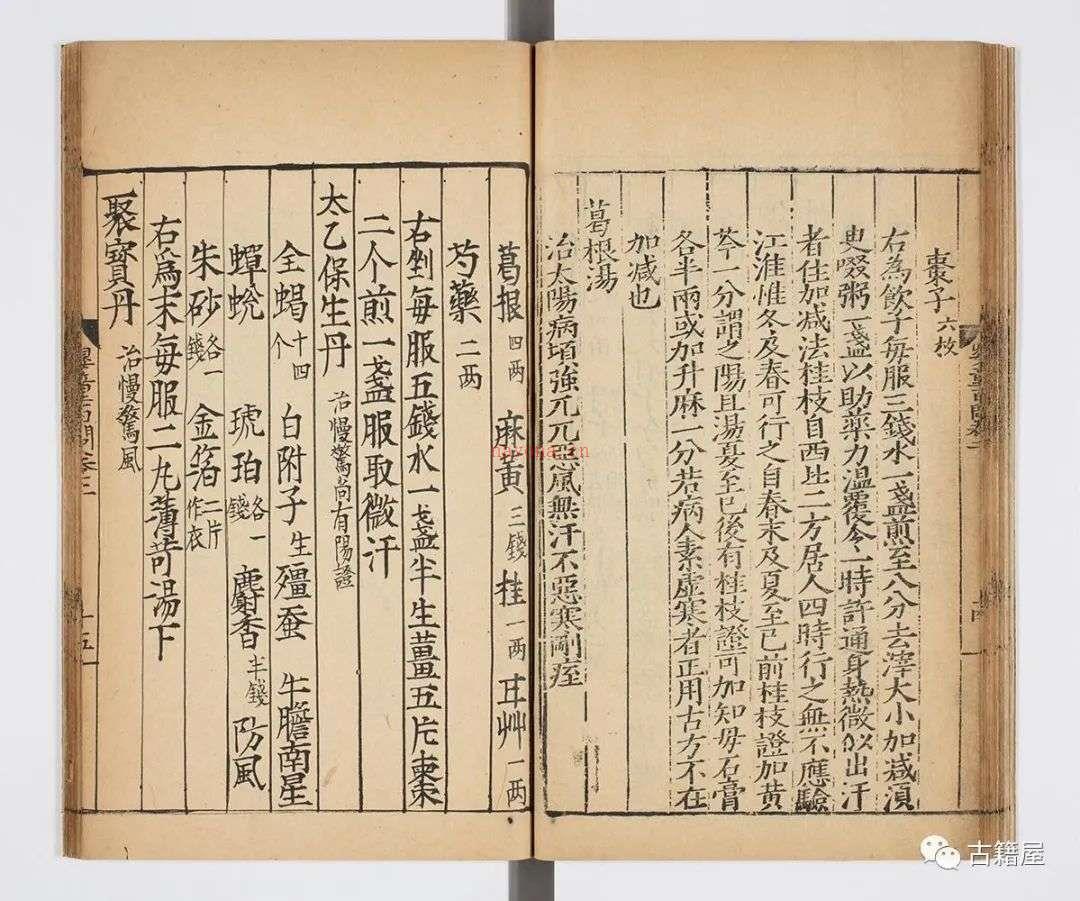 棗子六枚
右為飲子每服三錢水一盞煎至八分去滓大小加減湏
臾啜粥一盞以助藥力溫覆令一時許通身熱微似出汗
者佳加减法桂枝自西北二方居人四時行之無不應驗
江淮惟冬及春可行之自春末及夏至已前桂枝證加黃
芩一分謂之陽旦湯夏至已後有桂枝證可加知毋石膏
各半兩或加升麻一分若病人素虛寒者正用古方不在
加减也
葛根湯
治太陽病項強兀兀惡風無汗不惡寒剛痓
葛根四两 麻黃三錢 桂一两 甘艸一两
芍藥二两
右剉每服五錢水一盞半生薑五片棗
二个煎一盞服取微汗
太乙保生丹治慢驚尚有陽證
全蝎十四个 白附子生 殭蚕 牛膽南星
蟬蛻 琥珀各一錢 麝香半錢 防風
朱砂各一錢 金箔二片作衣
右爲末每服二丸薄苛湯下
聚寶丹治慢驚風
卷三
十五
nayona.cn
古籍屋